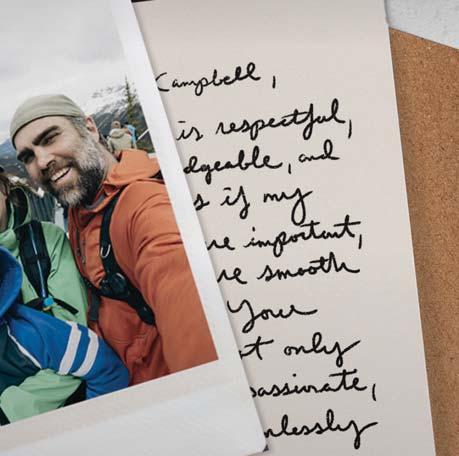 Campbell,
is respectful,
dgeable, and
s if my
re important,
re smooth
Your
t only
passionate,
nlessly